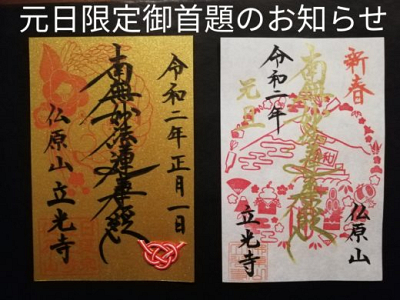 元日限定御首題のお知らせ
令和二年正月一日
南無妙法蓮華経
仏原山立光寺
新春
令和二年
元旦
南無妙法蓮華経
仏原山
立光寺